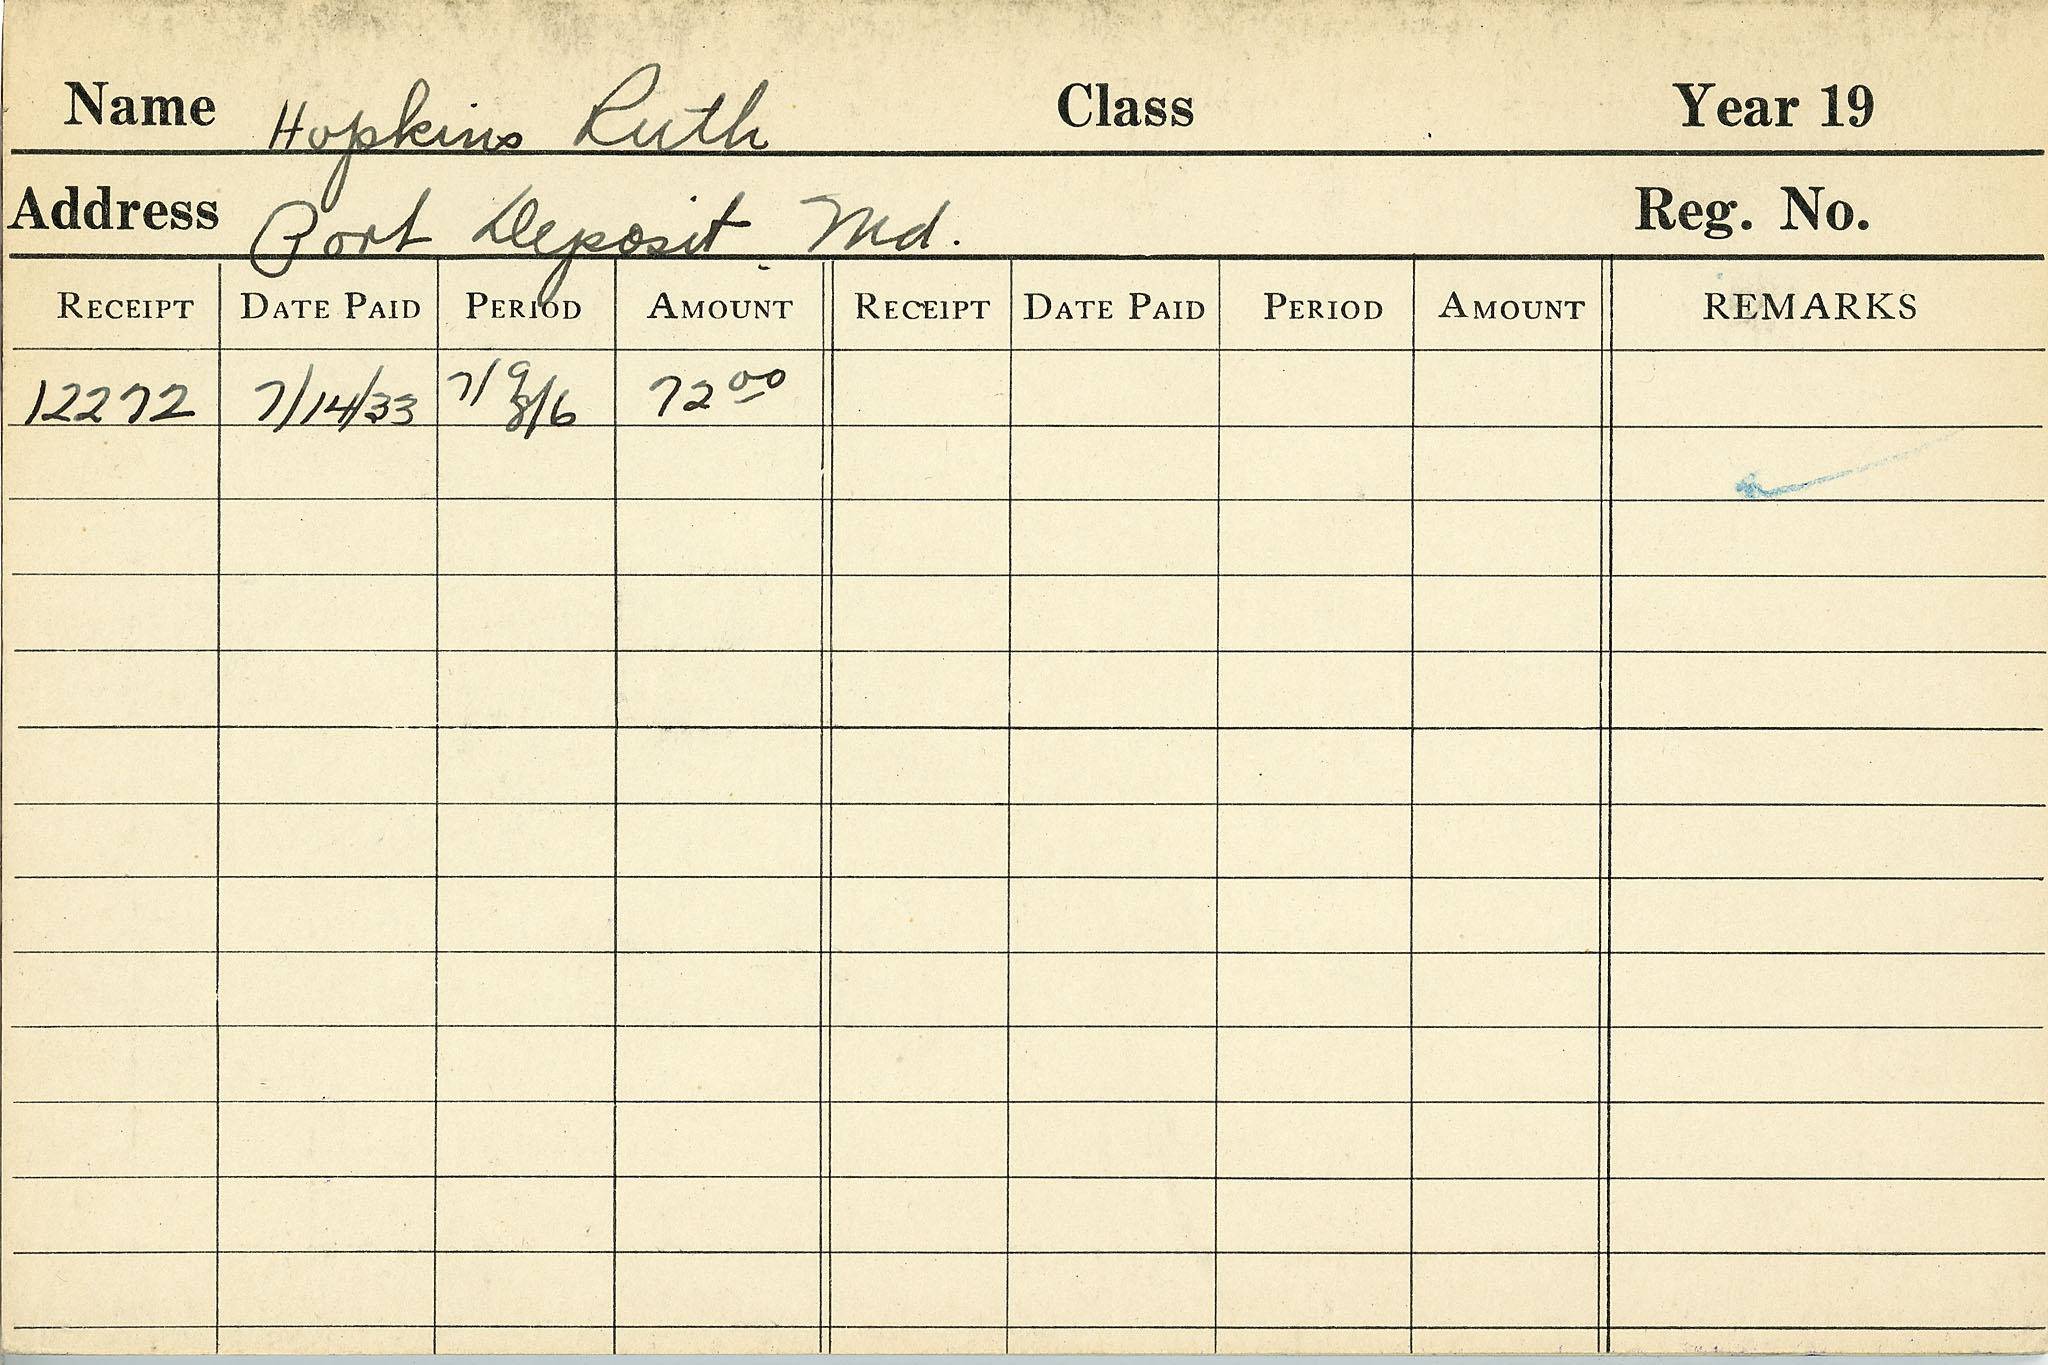 Name Hopkins Ruth Class Year 19
Address Port Deposit Md. Reg. No.
RECEIPT DATE PAID PERIOD AMOUNT RECEIPT DATE PAID PERIOD AMOUNT REMARKS
12272 7/14/33 7/9 8/16 72 00